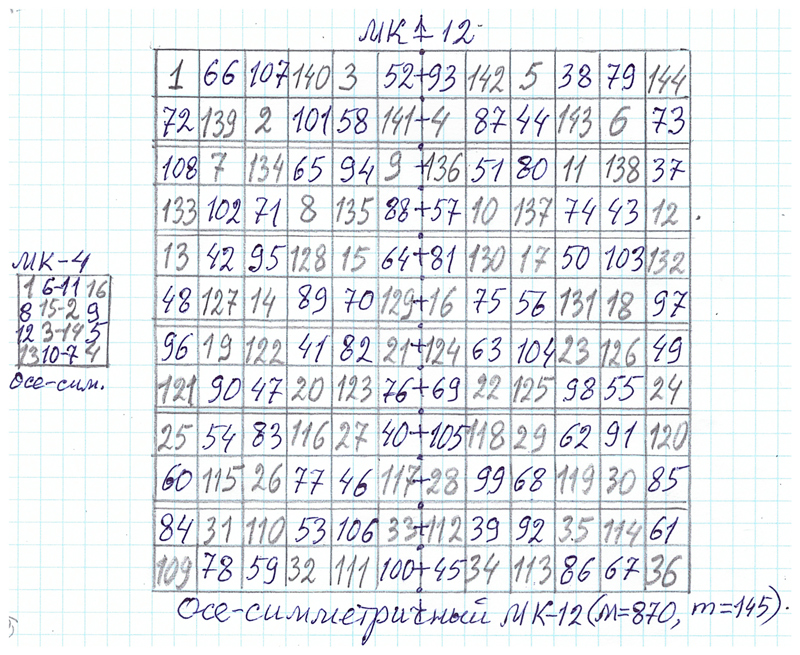 МК 12
1 66 107 140 3 52 93 142 5 38 79 144
72 139 2 101 58 141 4 87 44 143 6 73
108 7 134 65 94 9 136 51 80 11 138 37
133 102 71 8 135 88 57 10 137 74 43 12
13 42 95 128 15 64 81 130 17 50 103 132
48 127 14 89 70 129 16 75 56 131 18 97
96 19 122 41 82 21 124 63 104 23 126 49
121 90 47 20 123 76 69 22 125 98 55 24
25 54 83 116 27 40 105 118 29 62 91 120
60 115 26 77 46 117 28 99 68 119 30 85
84 31 110 53 106 33 112 39 92 35 114 61
109 78 59 32 111 100 45 34 113 86 67 36
МК-4
1 6-11 16
8 15-2 9
12 3-14 5
13 10-7 4
Осе-сим.
Осе-симметричный МК-12 (м=870, m=145).